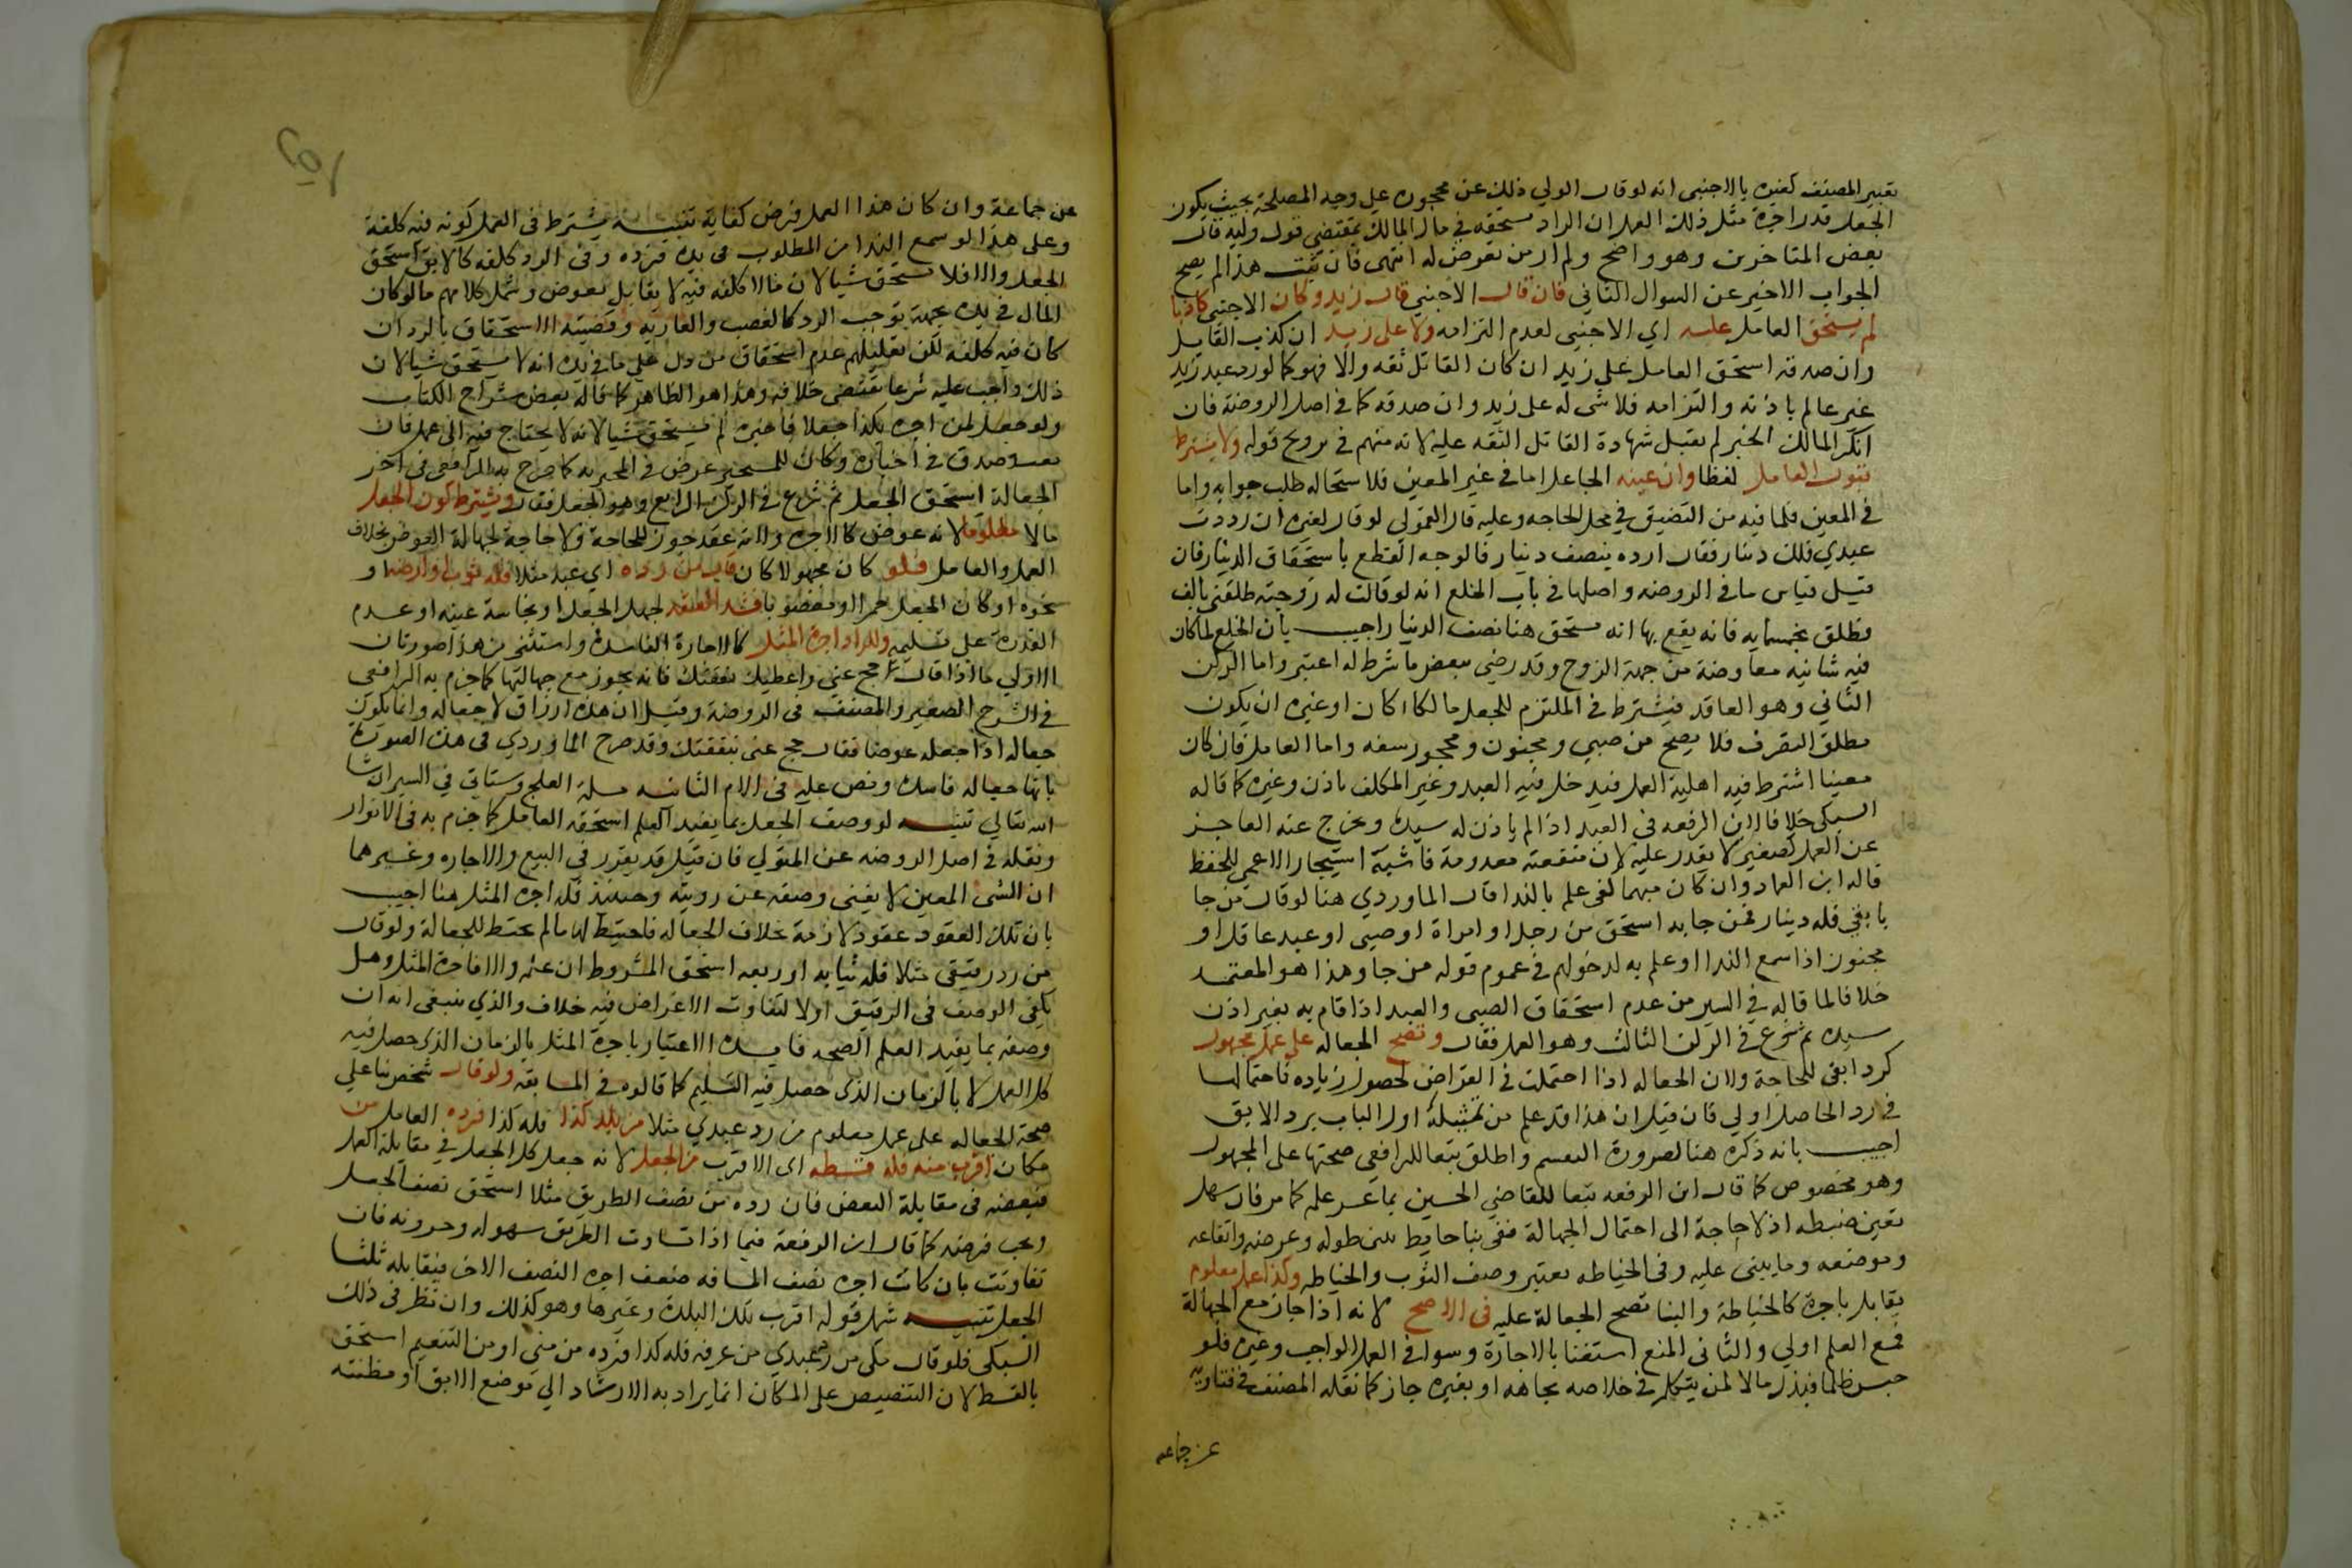 تعبير المصنف كغيره بالاجنبى انه لو قال الولي ذلك عن محجوره على وجه المصلحة بحيث يكون
الجعل قدر اجرة مثل ذلك العمل ان الراد يستحقه في مال المالك بمقتضى قول وليه قال
بعض المتاخرين وهو واضح ولم ار من تعرض له انتهى فان ثبت هذا لم يصح
الجواب الاخير عن السوال الثانى فان قال الاجنبي قال زيد وكان الاجنبي كاذبا
لم يستحق العامل عليه اي الاجنبى لعدم التزامه ولا على زيد ان كذب القايل
وان صدقه استحق العامل على زيد ان كان القائل ثقه والا فهو كما لو رد عبد زيد
غير عالم باذنه والتزامه فلا شى له على زيد وان صدقه كما في اصل الروضة فان
انكر المالك الخبر لم تقبل شهادة القائل الثقه عليه لانه متهم في ترويج قوله ولا يشترط
قبول العامل لفظا وان عينه الجاعل اما في غير المعين فلاستحاله طلب جوابه واما
في المعين فلما فيه من التضيق في محل الحاجه وعليه قال القمولي لو قال لغيره ان رددت
عبدي فلك دينار فقال ارده بنصف دينار فالوجه القطع باستحقاق الدينار فان
قيل قياس ما في الروضه واصلها في باب الخلع انه لو قالت له زوجته طلقني بالف
فطلق بخمسمايه فانه يقع بها انه يستحق هنا نصف الدينار اجيب بان الخلع لما كان
فيه شائبة معاوضة من جهة الزوج وقد رضي ببعض ما شرط له اعتبر واما الركن
الثاني وهو العاقد فيشترط في الملتزم للجعل مالكا كان او غيره ان يكون
مطلق التصرف فلا يصح من صبي ومجنون ومحجور سفه واما العامل فان كان
معينا اشترط فيه اهلية العمل فيدخل فيه العبد وغير المكلف باذن وغيره كما قاله
السبكى خلافا لابن الرفعه في العبد اذا لم ياذن له سيده وخرج عنه العاجز
عن العمل كصغير لا يقدر عليه لان منفعته معدومة فاشبه استيجار الاعمى للحفظ
قاله ابن العماد وان كان مبهما كفى علم بالندا قال الماوردي هنا لو قال من جا
بابقي فله دينار فمن جا به استحق من رجل او امراة او صبى او عبد عاقل او
مجنون اذا سمع الندا او علم به لدخولهم في عموم قوله من جا وهذا هو المعتمد
خلافا لما قاله في السير من عدم استحقاق الصبى والعبد اذا قام به بغير اذن
سيده ثم شرع في الركن الثالث وهو العمل فقال وتصح الجعاله على عمل مجهول
كرد ابق للحاجة ولان الجعاله اذا احتملت في القراض لحصول زياده فاحتمالها
في رد الحاصل اولي فان قيل ان هذا قد علم من تمثيله اول الباب برد الابق
اجيب بانه ذكره هنا لضرورة التقسيم واطلق تبعا للرافعي صحتها على المجهول
وهو مخصوص كما قال ابن الرفعه تبعا للقاضي الحسين بما عسر علمه كما مر فان سهل
تعين ضبطه اذ لا حاجة الى احتمال الجهالة ففي بنا حايط يبين طوله وعرضه وارتفاعه
وموضعه وما يبنى عليه وفى الخياطه يعتبر وصف الثوب والخياطه وكذا عمل معلوم
يقابل باجرة كالخياطة والبنا تصح الجعالة عليه في الاصح لانه اذا جاز مع الجهالة
فمع العلم اولي والثاني المنع استغنا بالاجارة وسوا في العمل الواجب وغيره فلو
حبس ظلما فبذل مالا لمن يتكلم في خلاصه بجاهه او بغيره جاز كما نقله المصنف في فتاويه
عن جماعه
عن جماعة وان كان هذا العمل فرض كفاية تنبيه يشترط فى العمل كونه فيه كلفة
وعلى هذا لو سمع الندا من المطلوب فى يده فرده وفى الرد كلفه كالابق استحق
الجعل والا فلا يستحق شيا لان ما لا كلفه فيه لا يقابل بعوض وشمل كلامهم ما لو كان
المال في يده بجهة توجب الرد كالغصب والعاريه وقضيته الاستحقاق بالرد ان
كان فيه كلفة لكن تعليلهم عدم استحقاق من دل على ما في يده انه لا يستحق شيا لان
ذلك واجب عليه شرعا يقتضي خلافه وهذا هو الظاهر كما قاله بعض شراح الكتاب
ولو جعل لمن اخبره بكذا جعلا فاخبره لم يستحق شيا لانه لا يحتاج فيه الى عمل فان
تعب وصدق في اخباره وكان للمستخبر غرض في المخبر به كما صرح به الرافعي في اخر
الجعالة استحق الجعل ثم شرع في الركن الرابع وهو الجعل فقال ويشترط كون الجعل
مالا معلوما لانه عوض كالاجره ولانه عقد جوز للحاجة ولا حاجة لجهالة العوض بخلاف
العمل والعامل فلو كان مجهولا كان قال من رده اي عبد مثلا فله ثوب او ارضيه او
نحوه او كان الجعل خمرا او مغصوبا فسد العقد لجهل الجعل او نجاسة عينه او عدم
القدرة على تسليمه وللراد اجرة المثل كالاجارة الفاسدة واستثنى من هذا صورتان
الاولي ما اذا قال حج عني واعطيك نفقتك فانه يجوز مع جهالتها كما جزم به الرافعى
في الشرح الصغير والمصنف في الروضة وقيل ان هذه ارزاق لا جعاله وانما يكون
جعاله اذا جعله عوضا فقال حج عنى بنفقتك وقد صرح الماوردي في هذه الصورة
بانها جعاله فاسدة ونص عليه فى الام الثانيه مسلة العلج وستاتى في السير ان شا
الله تعالي تنبيه لو وصف الجعل بما يفيد العلم استحقه العامل كما جزم به فى الانوار
ونقله في اصل الروضه عن المتولي فان قيل قد تقرر في البيع والاجاره وغيرهما
ان الشى المعين لا يغنى وصفه عن رويته وحينئذ فله اجره المثل هنا اجيب
بان تلك العقود عقود لازمة بخلاف الجعاله فاحتيط لها مالم يحتط للجعالة ولو قال
من رد رقيقى مثلا فله ثيابه او ربعه استحق المشروط ان علمه والا فاجرة المثل وهل
يكفى الوصف فى الرقيق او لا لتفاوت الاغراض فيه خلاف والذي ينبغى انه ان
وصفه بما يفيد العلم الصحه فايده الاعتبار باجرة المثل بالزمان الذى حصل فيه
كل العمل لا بالزمان الذى حصل فيه التسليم كما قالوه في المسابقه ولو قال شخص بنا على
صحة الجعاله على عمل معلوم من رد عبدي مثلا من بلد كذا فله كذا فرده العامل من
مكان اقرب منه فله قسطه اى الاقرب من الجعل لانه جعل كل الجعل في مقابلة العمل
فبعضه في مقابلة البعض فان رده من نصف الطريق مثلا استحق نصف الجعل
ويجب فرضه كما قال ابن الرفعة فيما اذا تساوت الطريق سهوله وحزونه فان
تفاوتت بان كانت اجره نصف المسافه ضعف اجره النصف الاخر فيقابله ثلثا
الجعل تنبيه شمل قوله اقرب تلك البلدة وغيرها وهو كذلك وان نظر فى ذلك
السبكى فلو قال مكى من رد عبدي من عرفه فله كذا فرده من منى او من التنعيم استحق
بالقسط لان التنصيص على المكان انما يراد به الارشاد الي موضع الابق او مظنته